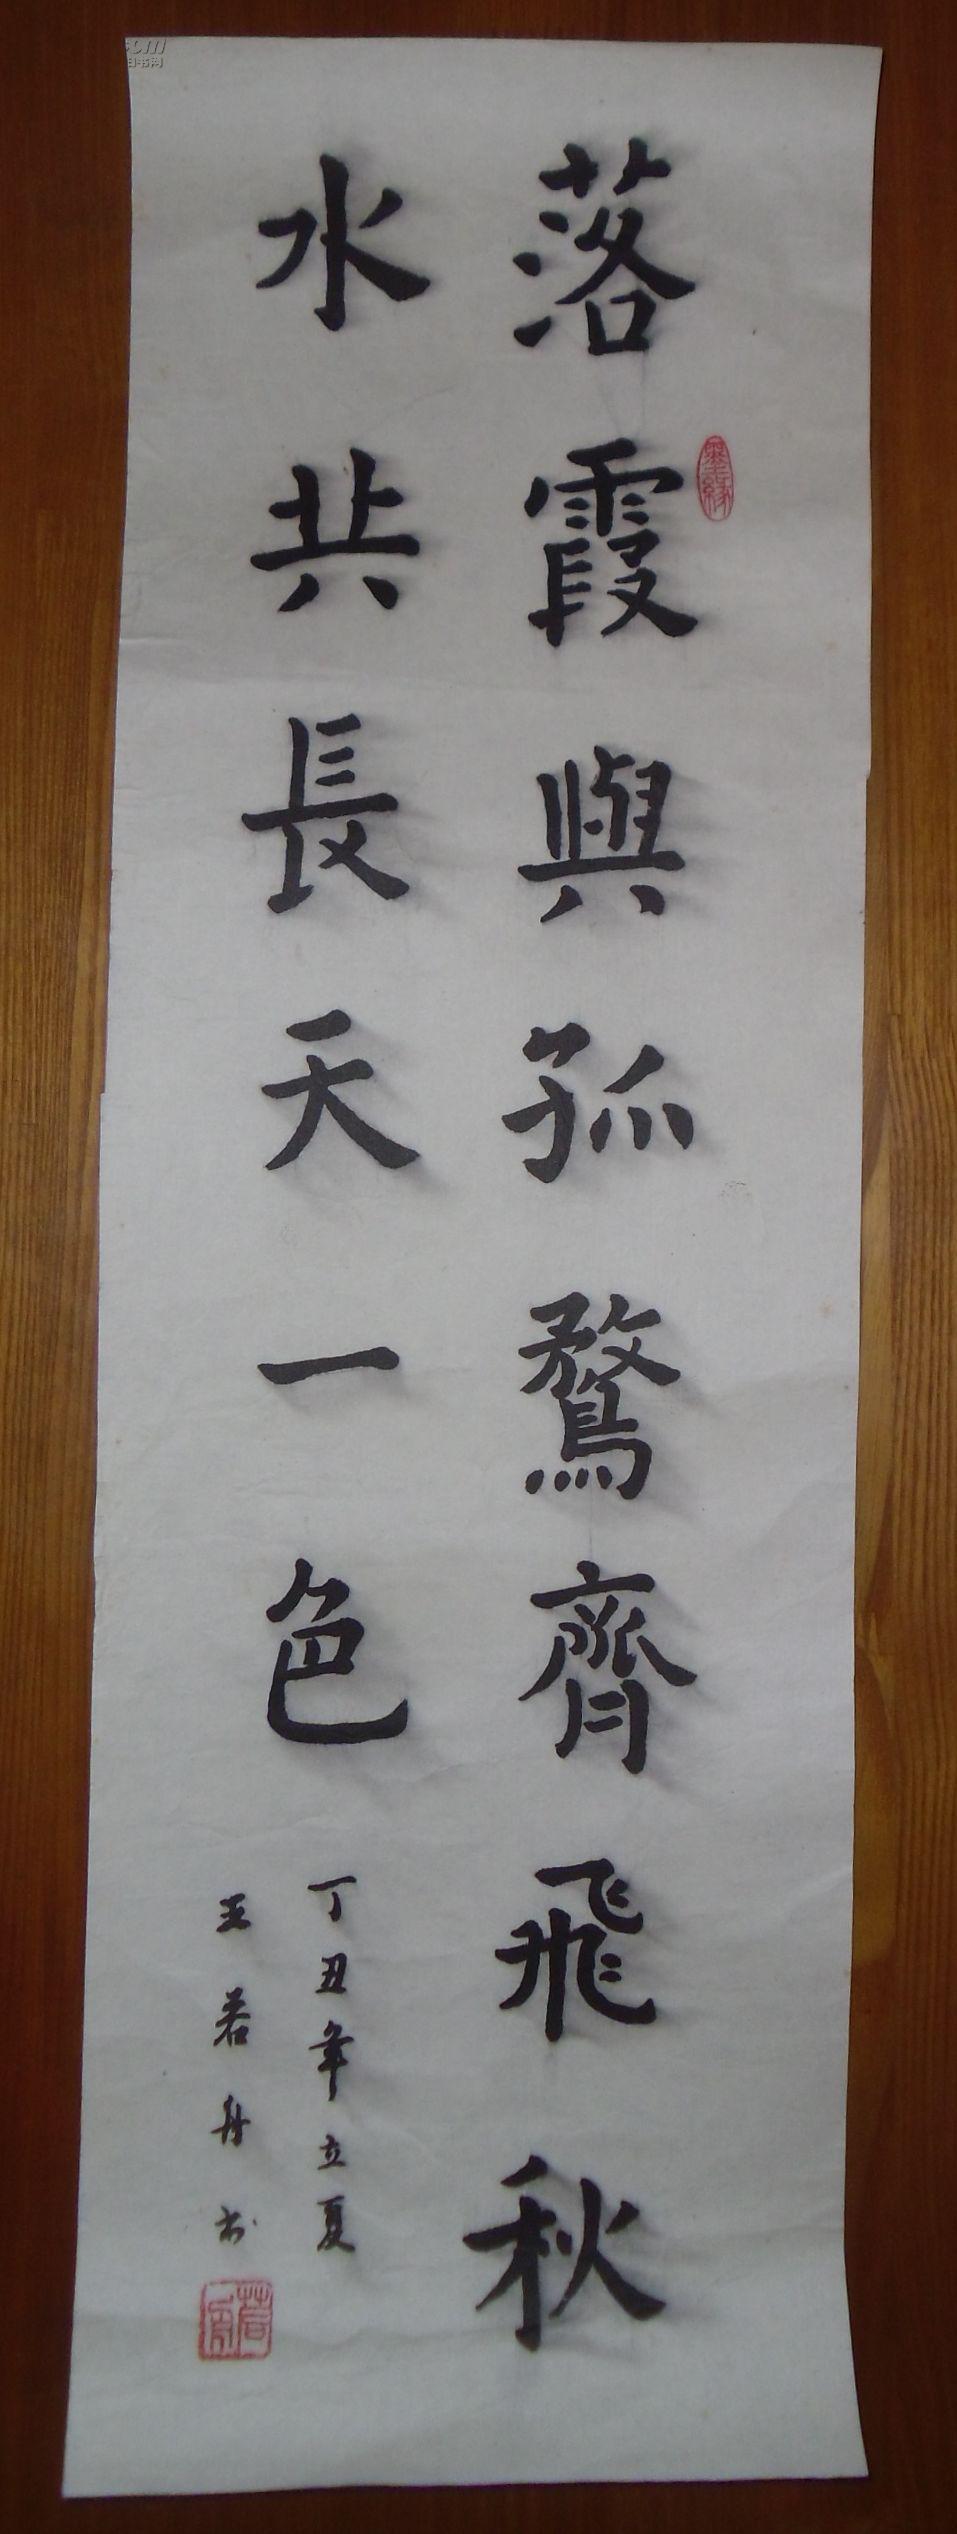 落霞與孤鶩齊飛秋
水共長天一色
丁丑年立夏
王若舟书
墨緣